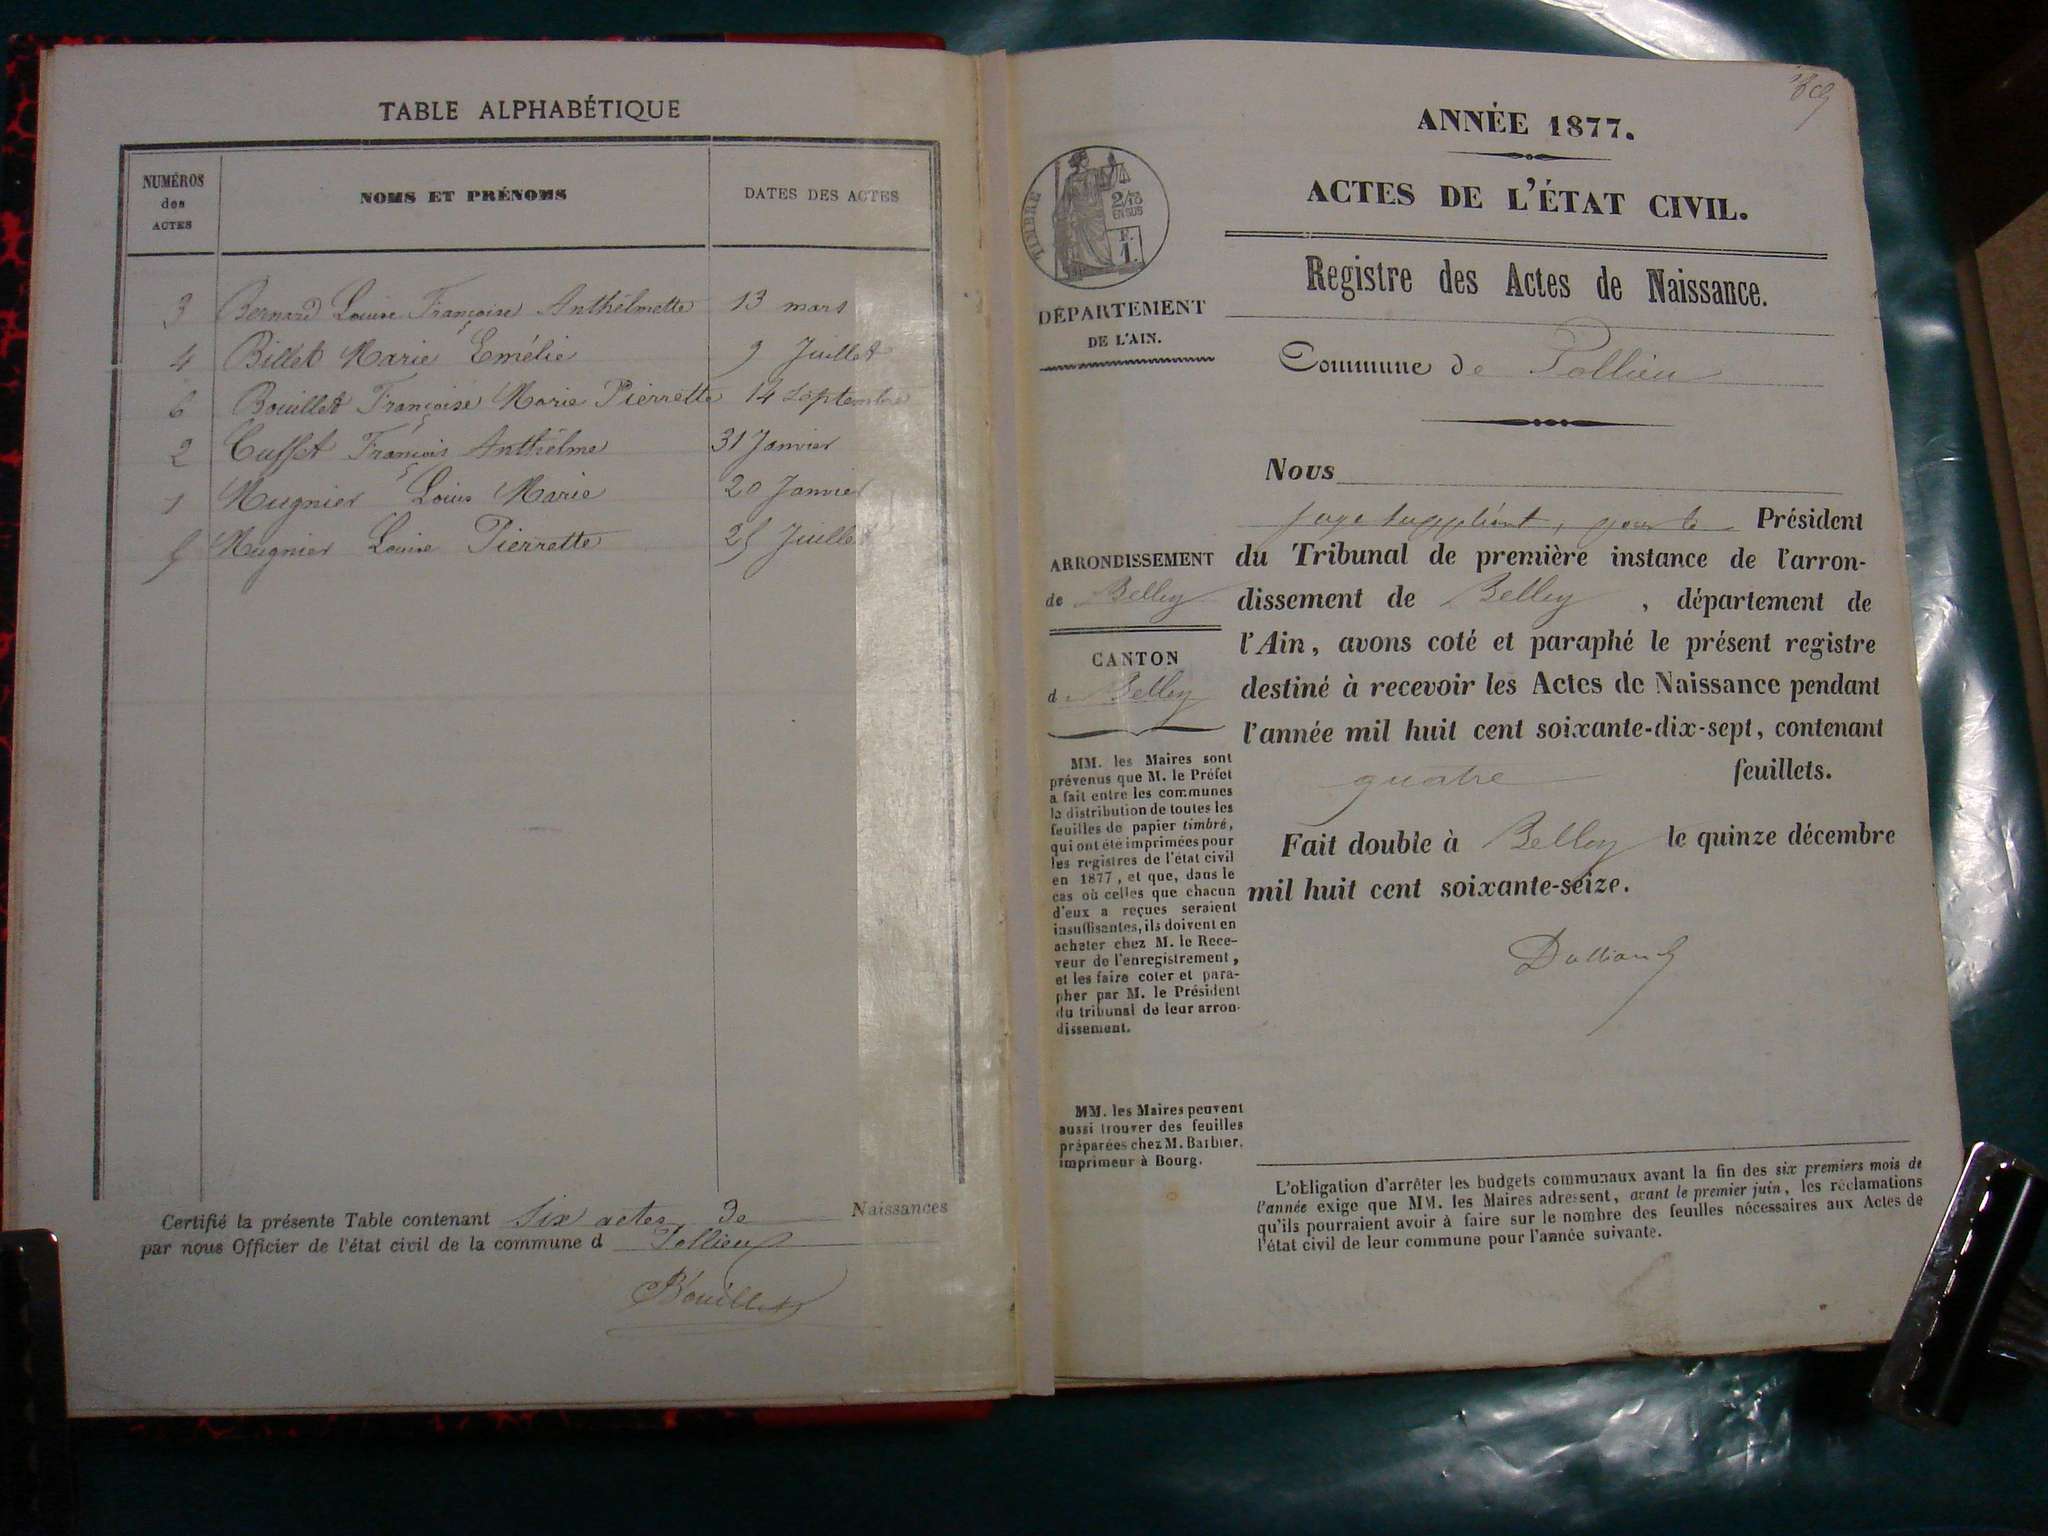 TABLE ALPHABÉTIQUE
NUMÉROS des ACTES
NOMS ET PRÉNOMS
DATES DES ACTES
3 Bernard Louise Françoise Anthelmette 13 mars
4 Billet Marie Emélie 9 Juillet
6 Bouillet Françoise Marie Pierrette 14 Septembre
2 Cusset François Anthelme 31 Janvier
1 Mugnier Louis Marie 20 Janvier
5 Mugnier Louise Pierrette 25 Juillet
Certifié la présente Table contenant six actes de Naissances
par nous Officier de l'état civil de la commune d Pollieu
Bouillet
ANNÉE 1877.
ACTES DE L'ÉTAT CIVIL.
TIMBRE
2/10
EN SUS
F.
1.
Registre des Actes de Naissance.
DÉPARTEMENT
DE L'AIN.
Commune de Pollieu
Nous
juge suppléant, pour le Président
du Tribunal de première instance de l'arron-
dissement de Belley, département de
l'Ain, avons coté et paraphé le présent registre
destiné à recevoir les Actes de Naissance pendant
l'année mil huit cent soixante-dix-sept, contenant
quatre feuillets.
Fait double à Belley le quinze décembre
mil huit cent soixante-seize.
ARRONDISSEMENT
de Belley
CANTON
de Belley
MM. les Maires sont
prévenus que M. le Préfet
a fait entre les communes
la distribution de toutes les
feuilles de papier timbré,
qui ont été imprimées pour
les registres de l'état civil
en 1877, et que, dans le
cas où celles que chacun
d'eux a reçues seraient
insuffisantes, ils doivent en
acheter chez M. le Rece-
veur de l'enregistrement,
et les faire coter et para-
pher par M. le Président
du tribunal de leur arron-
dissement.
MM. les Maires peuvent
aussi trouver des feuilles
préparées chez M. Barbier,
imprimeur à Bourg.
L'obligation d'arrêter les budgets communaux avant la fin des six premiers mois de
l'année exige que MM. les Maires adressent, avant le premier juin, les réclamations
qu'ils pourraient avoir à faire sur le nombre des feuilles nécessaires aux Actes de
l'état civil de leur commune pour l'année suivante.